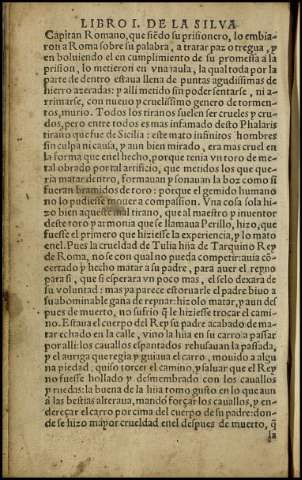 LIBRO I. DE LA SILVA
Capitan Romano, que siẽdo su prisionero, lo embia-
ron a Roma sobre su palabra, a tratar paz o tregua, y
en boluiendo el en cumplimiento de su promessa a la
prision, lo metieron en vna jaula, la qual toda por la
parte de dentro estaua llena de puntas agudissimas de
hierro azeradas: y alli metido sin poder sentarse, ni a-
rrimarse, con nueuo y cruelissimo genero de tormen-
tos, murio. Todos los tiranos suelen ser crueles y cru-
dos, pero entre todos es mas infamado desto Phalaris
tirano que fue de Sicilia: este mato infinitos hombres
sin culpa ni causa, y aun bien mirado, era mas cruel en
la forma que en el hecho, porque tenia vn toro de me-
tal obrado por tal artificio, que metidos los que que-
ria matar dentro, formauan y sonauan la boz como si
fueran bramidos de toro: porque el gemido humano
no lo pudiesse mouer a compassion. Vna cosa sola hi-
zo bien aqueste mal tirano, que al maestro y inuentor
deste toro y armonia que se llamaua Perillo, hizo, que
fuesse el primero que hiziesse la experiencia, y lo mato
en el. Pues la crueldad de Tulia hija de Tarquino Rey
de Roma, no se con qual no pueda competir: auia cõ-
certado y hecho matar a su padre, para auer el reyno
para si, que si esperara vn poco mas, el selo dexara de
su voluntad: mas ya parece estoruarle el padre biuo a
su abominable gana de reynar: hizolo matar, y aun des
pues de muerto, no sufrio q̃ le hiziesse trocar el cami-
no. Estaua el cuerpo del Rey su padre acabado de ma-
tar echado en la calle, vino la hija en su carro a passar
por alli: los cauallos espantados rehusauan la passada,
y el auriga que regia y guiaua el carro, mouido a algu
na piedad, quiso torcer el camino, y saluar que el Rey
no fuesse hollado y desmembrado con los cauallos
y ruedas: la buena de la hija tomo gusto en lo que aun
a las bestias alteraua, mando forçar los cauallos, y en-
dereçar el carro por cima del cuerpo de su padre: don-
de se hizo mayor crueldad en el despues de muerto, q̃
la